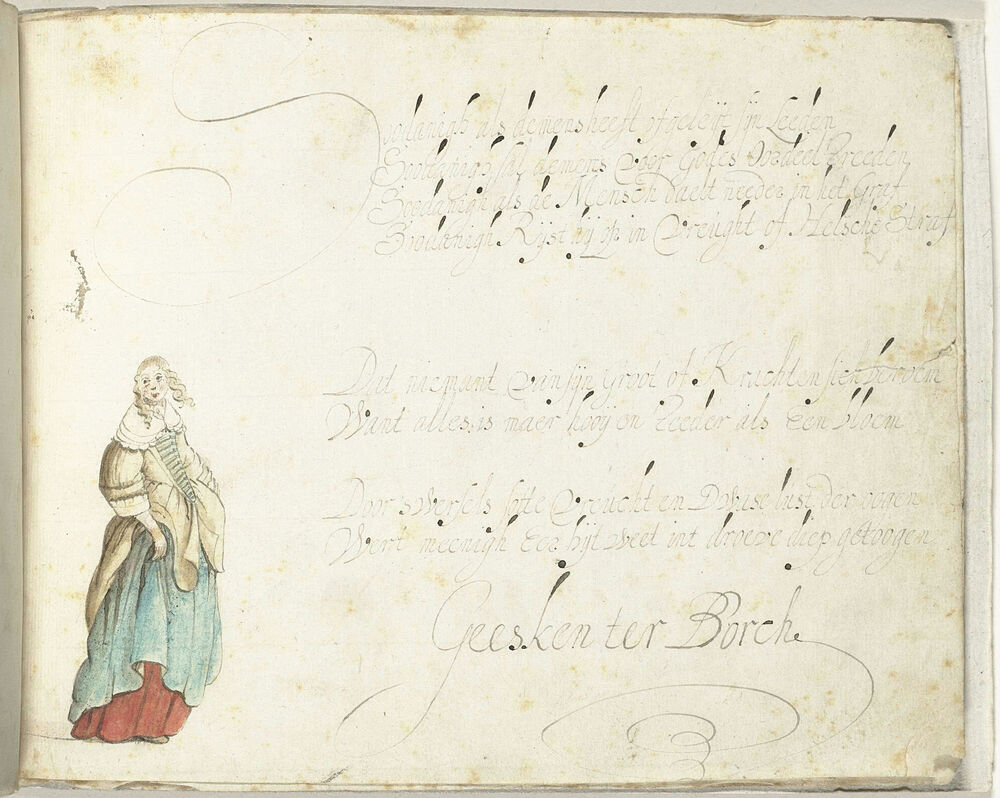 Sodanigh als de mens heeft afgeleijt sijn Leeden
Soodanigh sal de mens Voor Godes Oordeel treeden
Soodanigh als de Mensch daelt needer in het Graf
Soodanigh Rijst hij op in Vreught of Helsche Straf
Dat niemant Van sijn groot of Krachten sich beroem
Want alles is maer hooij en teeder als Een bloem
Door swerfels sotte Vreucht en Dwase lust der oogen
Wert meenigh Eer hijt weet int droeve diep getoogen
Geesken ter Borch